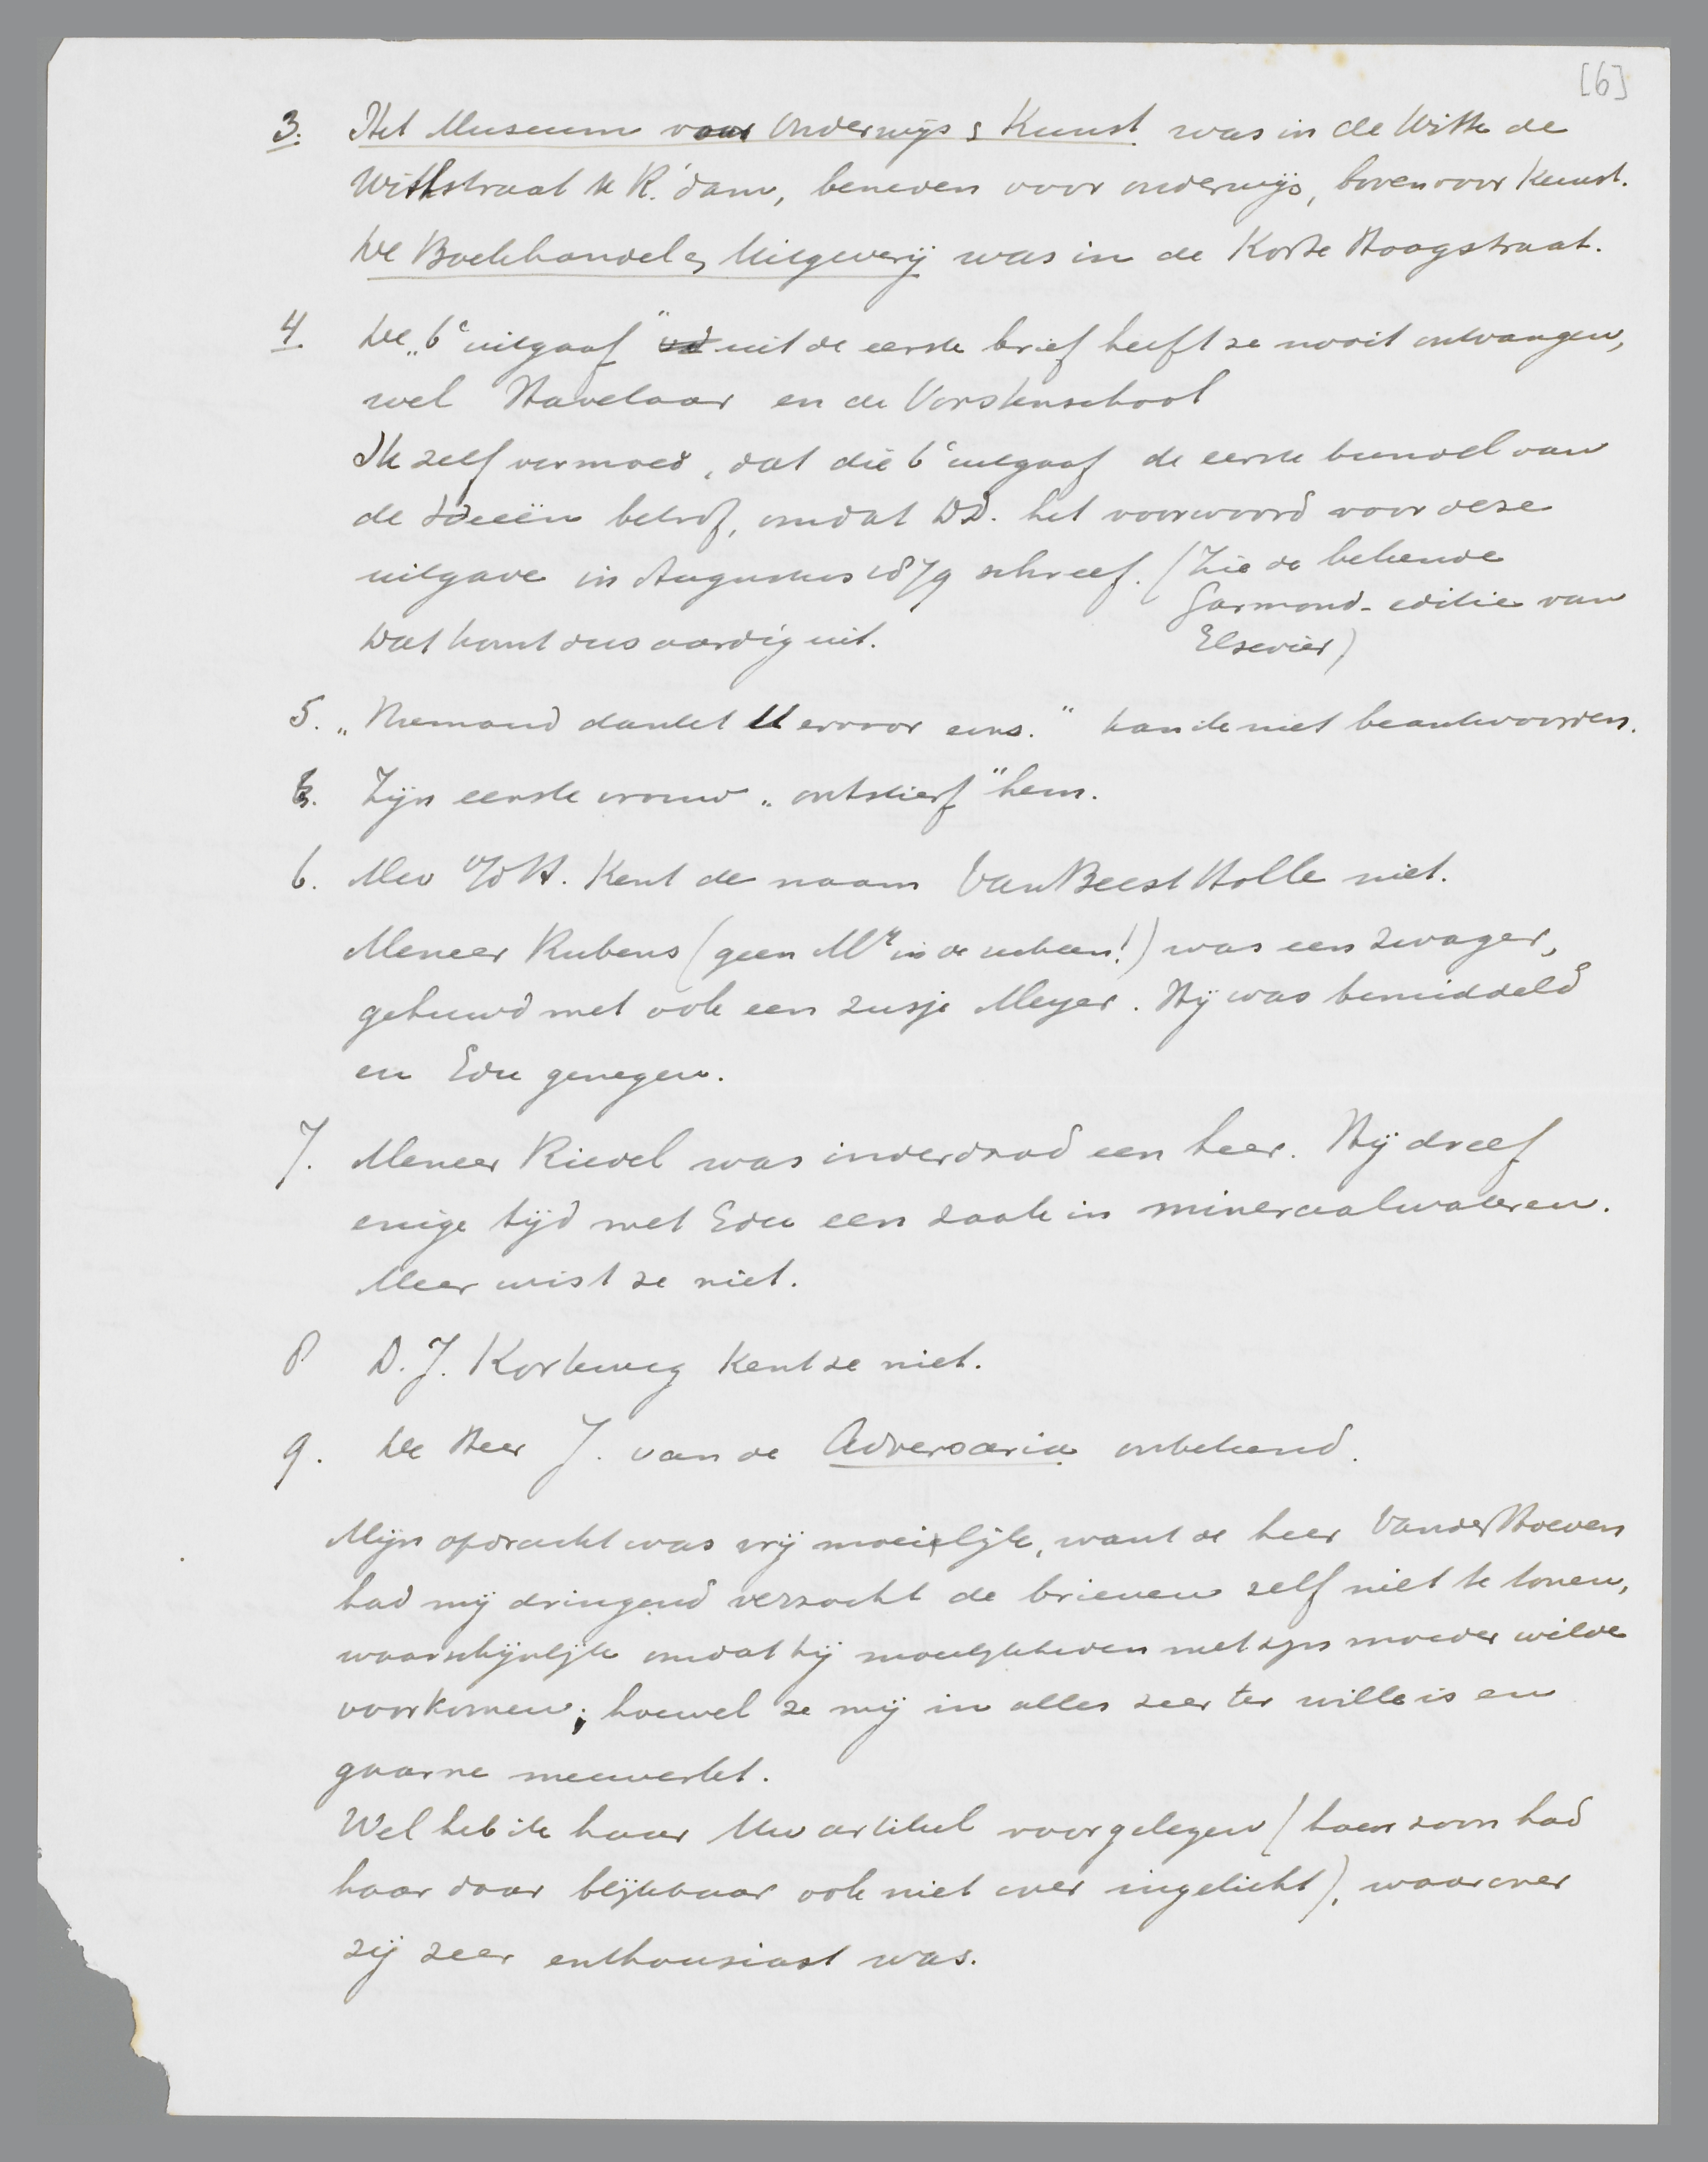 [6]
3. Het Museum voor Onderwijs & Kunst was in de Witte de
Withstraat te R.'dam, beneden voor onderwijs, boven voor Kunst.
De Boekhandel & Uitgeverij was in de Korte Hoogstraat.
4 De „6e uitgaaf" uit de eerste brief heeft ze nooit ontvangen,
wel Havelaar en de Vorstenschool
Ik zelf vermoed, dat die 6e uitgaaf de eerste bundel van
de Ideeën betrof, omdat DD. het voorwoord voor deze
uitgave in Augustus 1879 schreef. (Zie de bekende
Garmond-editie van
Elsevier)
Dat komt dus aardig uit.
5. „Niemand dankt U ervoor eens." kan ik niet beantwoorden.
Zijn eerste vrouw „ontstierf" hem.
6. Mev v/d H. Kent de naam Van Beest Holle niet.
Meneer Rubens (geen Mr in de rechten!) was een zwager,
gehuwd met ook een zusje Meyer. Hij was bemiddeld
en Edu genegen.
7. Meneer Riedel was inderdaad een heer. Hij dreef
enige tijd met Edu een zaak in mineraalwateren.
Meer wist ze niet.
8 D. J. Korteweg Kent ze niet.
9. De Heer J. van de Adversaria onbekend.
Mijn opdracht was vrij moeilijk, want de heer Van der Hoeven
had mij dringend verzocht de brieven zelf niet te tonen,
waarschijnlijk omdat hij moeilijkheden met zijn moeder wilde
voorkomen; hoewel ze mij in alles zeer ter wille is en
gaarne meewerkt.
Wel heb ik haar Uw artikel voorgelezen (haar zoon had
haar daar blijkbaar ook niet over ingelicht), waarover
zij zeer enthousiast was.